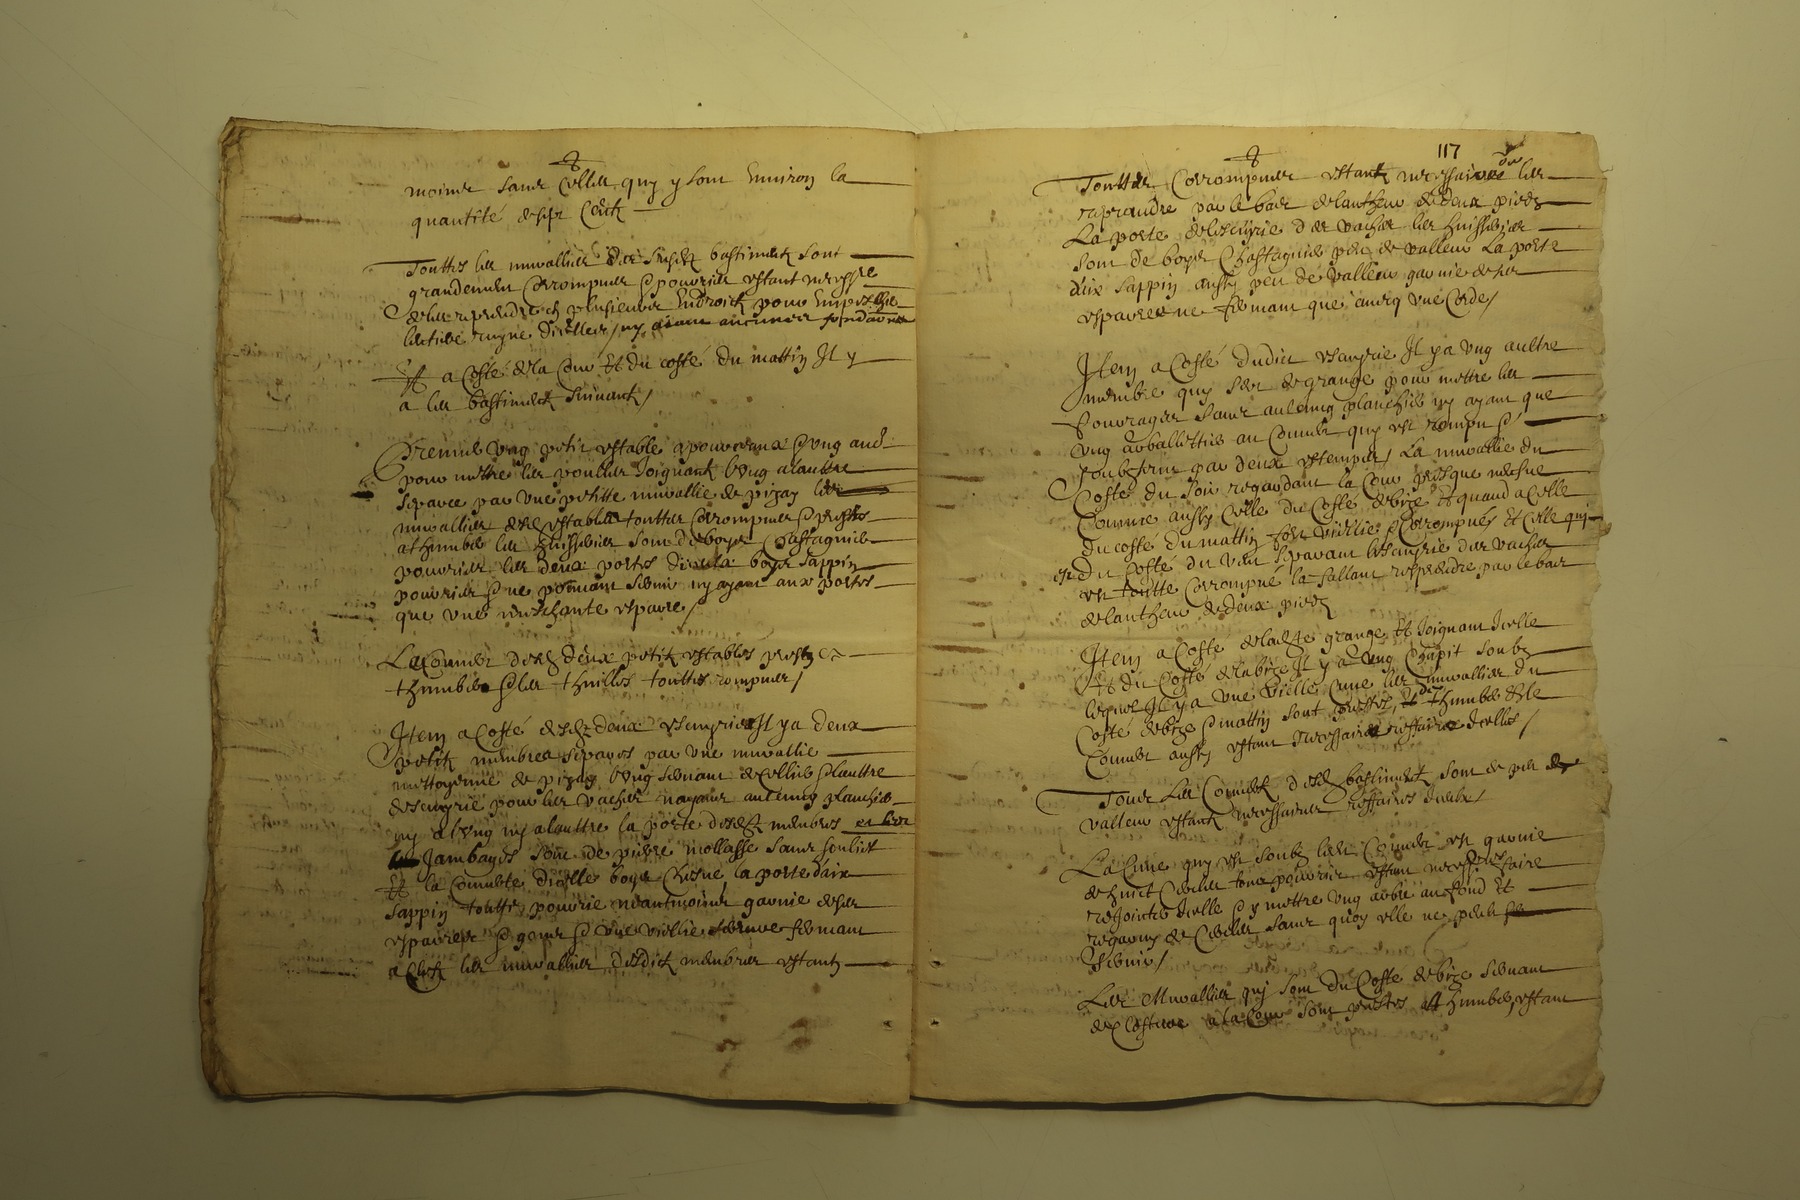 moings sans celles quy y sont Environ la
quantité de sept Centz
Touttes les murallies des susdz bastimentz sont
grandement Corrompues & pourries estant necesse
de les reprendre en plusieurs Endroictz pour Empescher
la ruyne dicelles / ny ayant aucunes
Et a Costé de la Cour Et du costé du mattin Il y
a les bastimentz suivantz /
Premier Ung petit estable a pourceaux & ung aud
pour mettre les poulles Joignant l'ung a laultre
separee par Une petitte murallie de pizay les
murallies desdz estables touttes Corrompues & prestes
a thumber les huisseries sont de boys Chastagnier
pourries les deux portes boys sappin
pourries & ne pouvant servir ny ayant aux portes
que une meschante esparre /
Le Couvert desdz deux petitz estables prestz a
thumber & les thuilles touttes rompues /
Item a Costé desdz deux escuyries Il y a deux
petitz membres separés par Une murallie
mettoyenne de pizay l'ung servant de cellier & laultre
descuyrie pour les vaches nayant aulcung plancher
ny a l'ung ny a laultre la porte desdz membres et les
Jambages sont de pierre mollasse sans
Et la Couverte dicelle boys Chesne la porte daix
sappin toutte pourrie neantmoings garnie de ses
esparres & gons & Une viellie serrure fermant
a Clefz les murallies desdictz membres estantz
117
Touttes Corrompues estantz necessaire de les
reprandre par le bas de lautheur de deux piedz
La porte de lescuyrie des vaches les huisseries
sont de boys Chastagnier peu de valleur La porte
daix sappin aussy peu de valleur garnie de ses
esparres ne fermant que avecq une Corde /
Item a Costé dudict escuyrie Il y a Ung aultre
membre quy sert de grange pour mettre les
fourrages sans aulcung plancher ny ayant que
Ung arballestier au Couvert quy est rompu &
soubstenu par deux estempes / La murallie du
Costé du soir regardant la Cour presque
Comme aussy Celle du Costé de bize Et quand a Celle
du costé du mattin fort viellie & Corrompues Et Celle qui
est du Costé du vent separant lescuyrie des vaches
est toutte Corrompue la fallant reprendre par le bas
de lautheur de deux piedz
Item a Costé de ladte grange Et Joignant Icelle
Et du Costé de la bize Il y a Ung Chapit soubz
lequel Il y a Une Vielle Cuve les murallies du
Costé de bize & mattin sont prestes de thumber & le
Couvert aussy estant necessaire reffaire Icelles /
Tous Les Couvertz desdz bastimentz sont de peu de
valleur estantz necessaires reffaires Iceux /
La Cuve quy est soubz ledt Couvert est garnie
de huict Cercles tous pourris estant necessaire
rejointer Icelle & y mettre Ung aultre au fond Et
regarny de Cercles sans quoy elle ne peult
servir /
Les Murallies quy sont du Costé de bize servant
de Closture a la Cour sont prestes a thumber estant